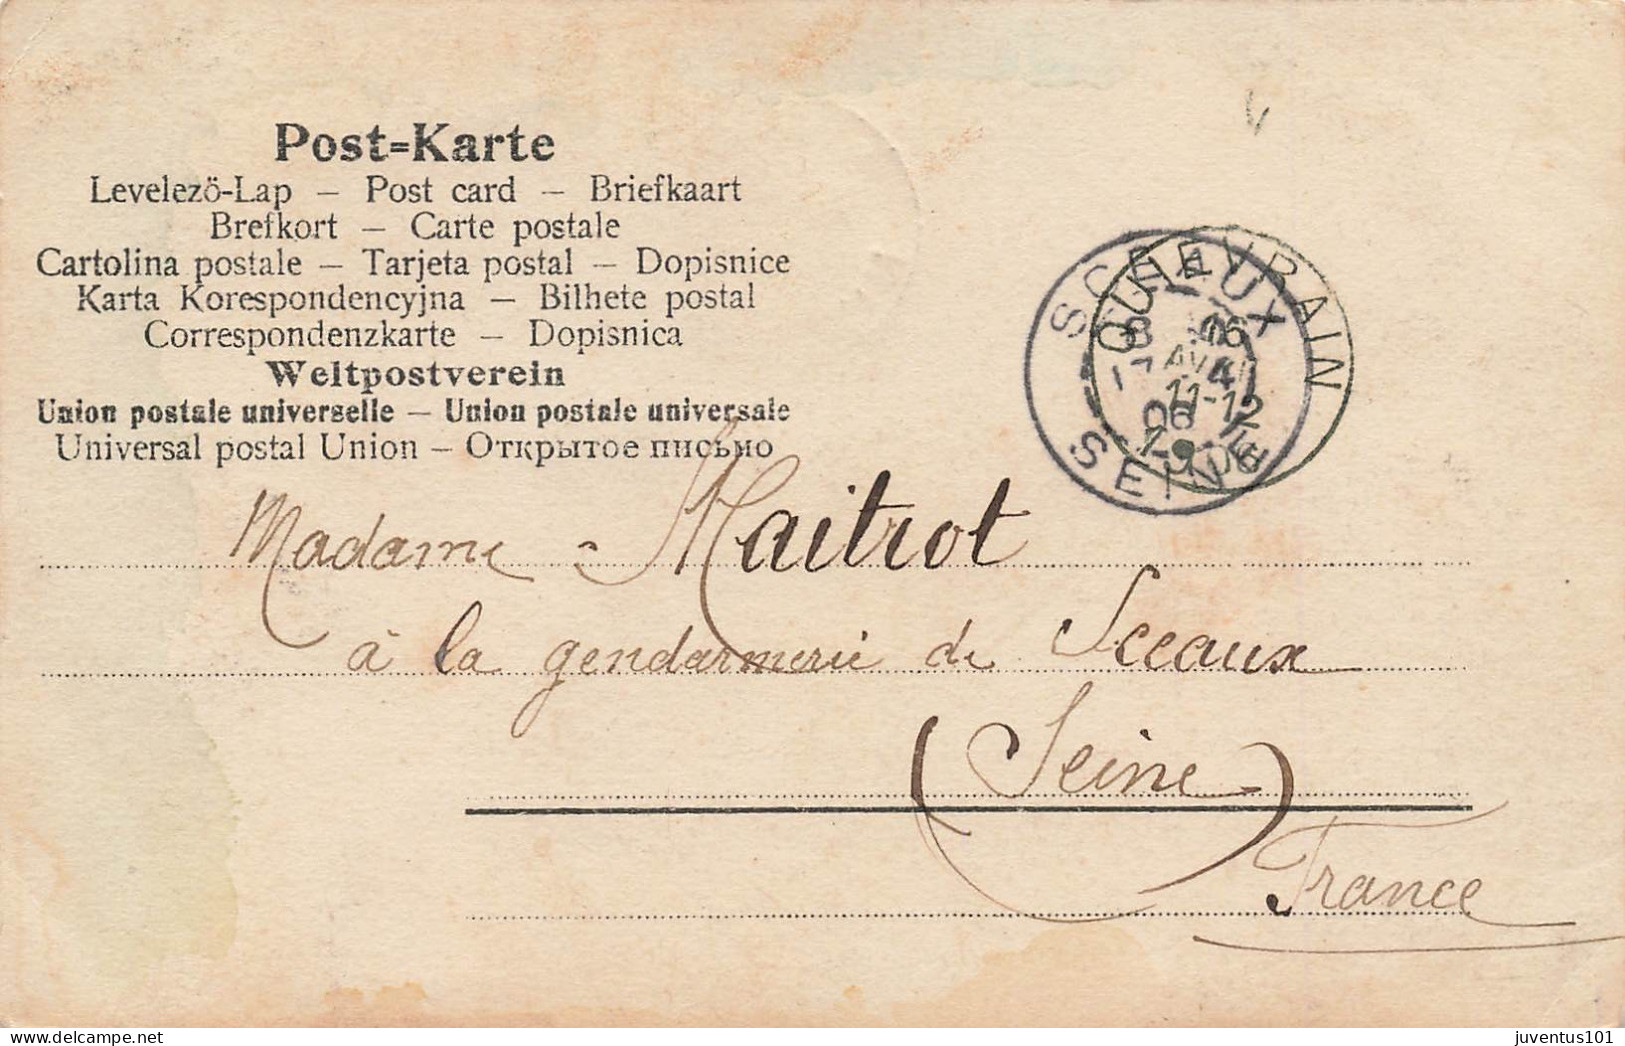 Post=Karte
Levelezö-Lap — Post card — Briefkaart
Brefkort — Carte postale
Cartolina postale — Tarjeta postal — Dopisnice
Karta Korespondencyjna — Bilhete postal
Correspondenzkarte — Dopisnica
Weltpostverein
Union postale universelle — Union postale universale
Universal postal Union — Открытое письмо
SCEAUX
SEINE
QUIÉVRAIN
11-12
06
Madame Maitrot
à la gendarmerie de Sceaux
(Seine)
France
delcampe.net
juventus101